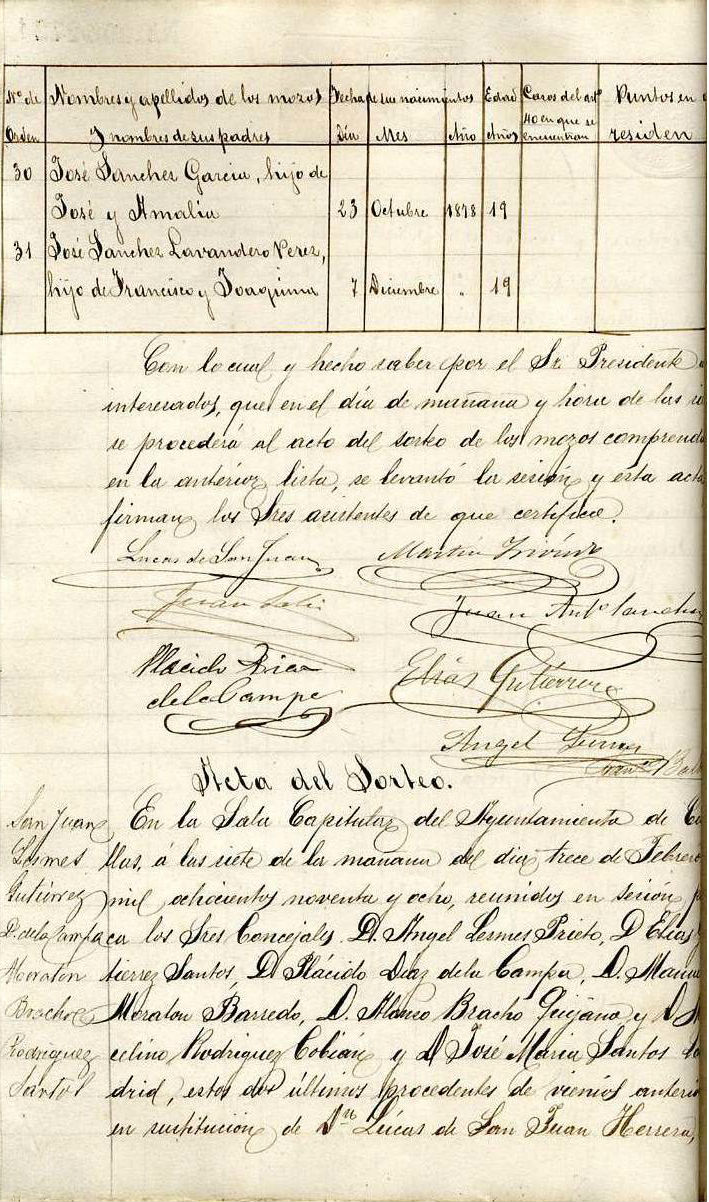 Nº de Nombres y apellidos de los mozos Fecha de sus nacimientos Edad Casos del artº Puntos en
40 en que se
Orden Y nombres de sus padres Día Mes Año Años encuentran residen
30 José Sanchez Garcia, hijo de
José y Amalia 23 Octubre 1878 19
31 José Sanchez Lavandero Perez,
hijo de Francisco y Joaquina 7 Diciembre " 19
Con lo cual y hecho saber por el Sr. Presidente
interesados, que en el día de mañana y hora de las
se procederá al acto del sorteo de los mozos comprend
en la anterior lista, se levantó la sesión y esta acta
firman los Sres asistentes de que certifico.
Lucas de San Juan Martin
Juan Juan Antº Sanchez
Placido Diaz Elías Gutiérrez
de la Campa
Angel Lermes
Acta del Sorteo.
San Juan En la Sala Capitular del Ayuntamiento de
Lesmes llas, á las siete de la mañana del dia trece de Febrero
Gutiérrez mil ochocientos noventa y ocho, reunidos en sesión
D. de la Campa ca los Sres Concejales D. Angel Lesmes Prieto, D Elias
Moraton tierrez Santos, D. Plácido Diaz de la Campa, D. Manu
Bracho Moraton Barredo, D. Alonso Bracho Quijano y D
Rodriguez celino Rodriguez Cobián y D José Maria Santos
Santos drid, estos dos últimos procedentes de vienios anterio
en sustitución de Dn Lúcas de San Juan Herrera,